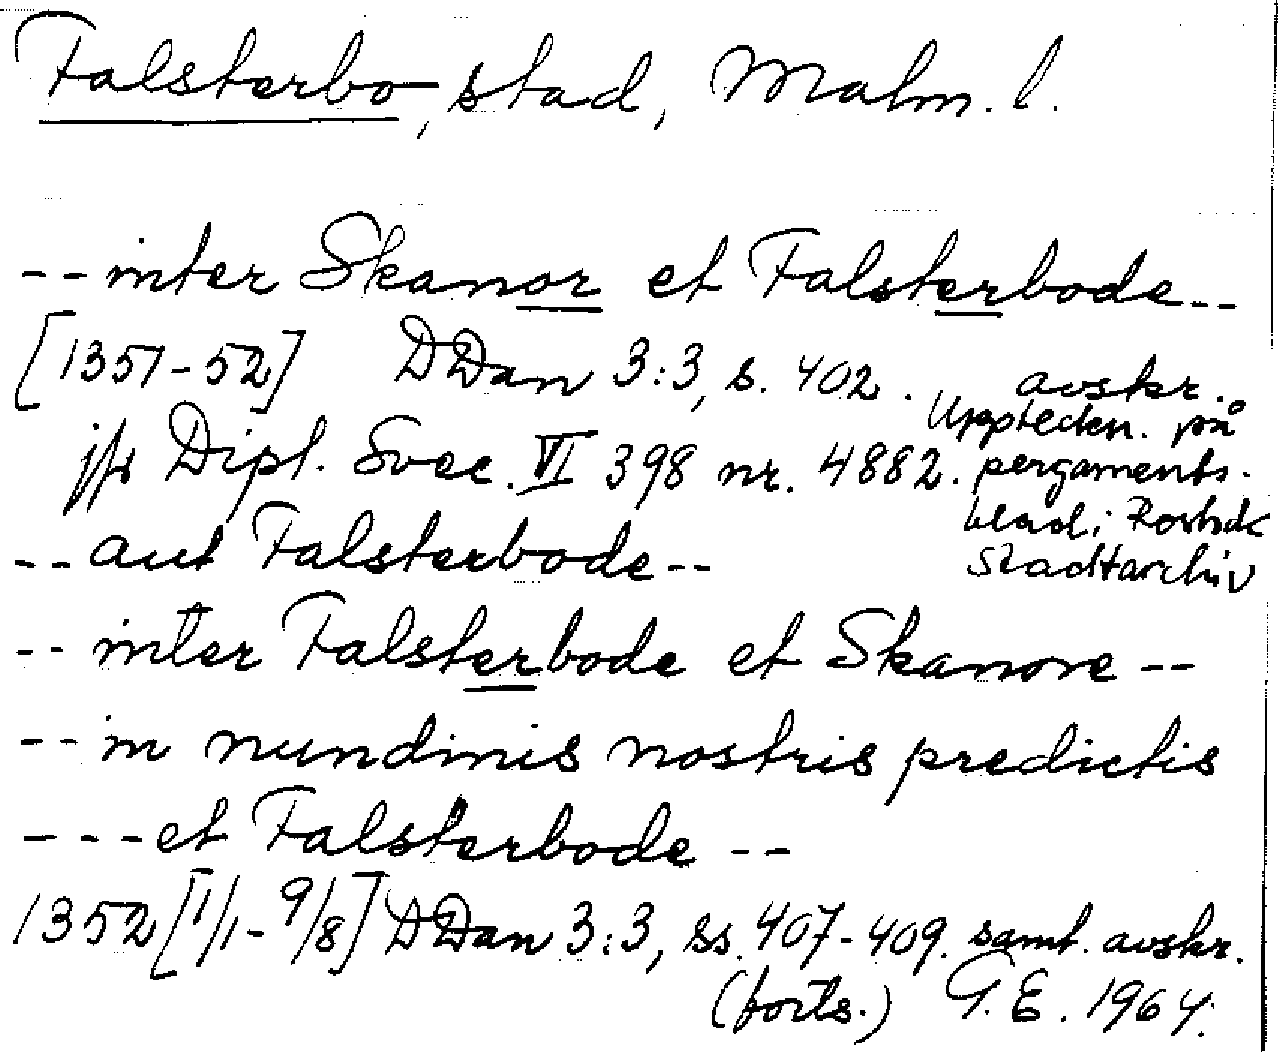 Falsterbo, stad, Malm. l.
-- inter Skanor et Falsterbode --
[1351-52] DDan 3:3, s. 402. avskr.
jfr Dipl. Svec. VI 398 nr. 4882.
Uppteckn. på
pergaments-
blad i Rostock
Stadtarchiv
-- aut Falsterbode --
-- inter Falsterbode et Skanore --
-- in nundinis nostris predictis
--- et Falsterbode --
1352 [1/1 - 9/8] DDan 3:3, ss. 407-409. samt. avskr.
(forts.) G.E. 1964.